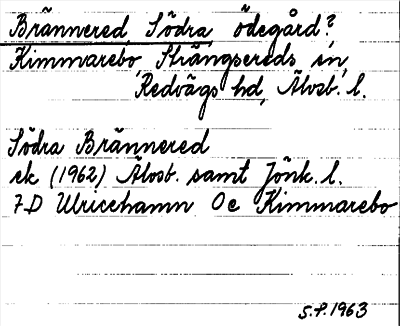 Brännered, Södra, ödegård?
Kimmarebo, Strängsereds sn,
Redvägs hd, Älvsb. l.
Södra Brännered
ek (1962) Älvsb. samt Jönk. l.
7D Ulricehamn 0e Kimmarebo
S.F. 1963